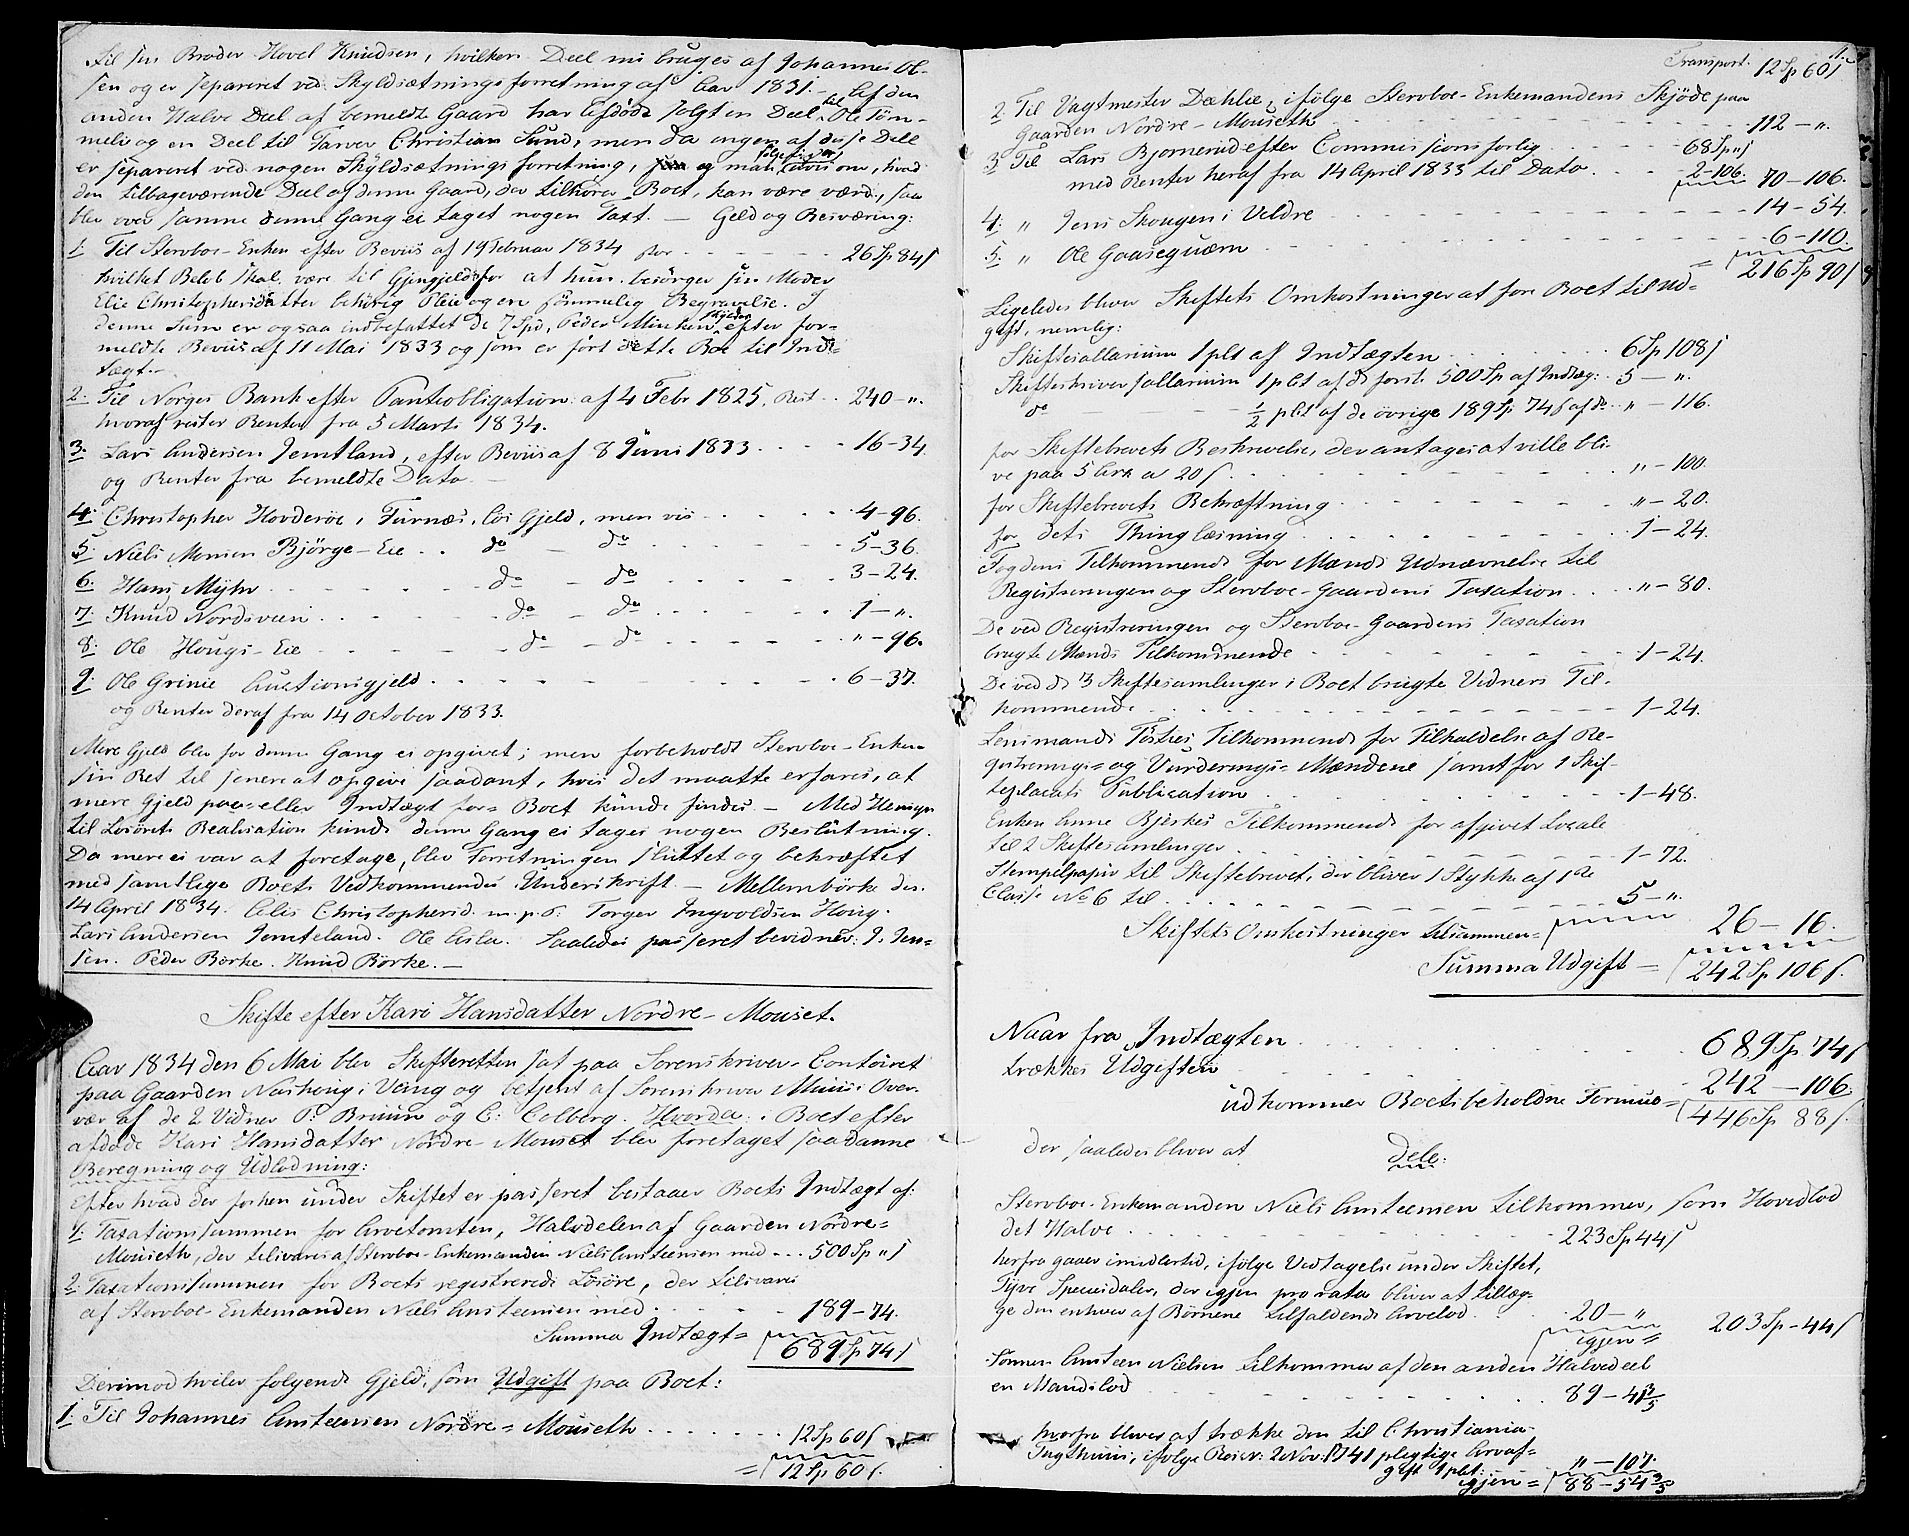 til sin Broder Hovel Knudsen, hvilken Deel nu bruges af Johannes Ol-
sen og er separeret ved Skyldsætningsforretning af Aar 1831. Af den
anden Halve Deel af bemeldte Gaard har Afdøde solgt en Deel til Ole Töm-
melie og en Deel til Farver Christian Lund, men da ingen af disse Dele
er separeret ved nogen Skyldsætnings forretning, og man er uvis om, hvad
den tilbageværende Deel af denne Gaard, der tilhører Boet, kan være værd, saa
blev over samme denne Gang ei taget nogen Taxt. — Gield og Besværing:
1. Til Stervboe-Enken efter Beviis af 19 Februar 1834 stor - - - - 26 Sp 84 s
hvilket Beløb skal være til Gjengjeld for at hun besörger sin Moder
Elie Christophersdatter behörig Pleie og en sömmelig Begravelse. I
denne Sum er ogsaa indbefattet de 7 Spd, Peder Minken skylder efter for-
meldte Beviis af 11 Mai 1833 og som er fört dette Boe til Ind-
tægt.-
2. Til Norges Bank efter Pantobligation af 4 Febr 1825, Rest - - 240 - ".
hvoraf rester Renter fra 5 Marts 1834.
3. Lars Andersen Jemtland, efter Beviis af 8 Juni 1833 - - - 16-34.
og Renter fra bemeldte Dato. -
4. Christopher Hovderöe, i Furnæs, lös Gjeld, men vis - - - - 4-96.
5. Niels Monsen Björge-Eie - - do - do - - - - 5-36.
6. Hans Myhr - - - - do - do - - - - 3-24.
7. Knud Nordsveen - - - - do - do - - - - 1 - ".
8. Ole Hougs-Eie - - - - do - do - - - - " - 96.
9. Ole Grinie Auctionsgjeld - - - - 6-37.
og Renter deraf fra 14 October 1833.
Mere Gjeld blev for denne Gang ei opgivet; men forbeholdt Stervboe-Enken
sin Ret til senere at opgive saadant, hvis det maatte erfares, at
mere Gjeld paa- eller Indtægt for- Boet kunde findes. - Med Hensyn
til Lösörets Realisation kunde denne Gang ei tages nogen Beslutning.
Da mere ei var at foretage, blev Forretningen sluttet og bekræftet
med samtlige Boets Vedkommendes Underskrift. - Mellembörke den
14 April 1834. Elis Christophersd. m. p. P. Torger Ingvoldsen Houg.
Lars Andersen Jemteland. Ole Asla. Saaledes passeret bevidner: J. Jen-
sen. Peder Börke. Knud Börke. -
Skifte efter Kari Hansdatter Nordre-Mouset.
Aar 1834 den 6 Mai blev Skifteretten sat paa Sorenskriver-Contoiret
paa Gaarden Nashoug i Vang og betjent af Sorenskriver Muus i Over-
vær af de 2 Vidner P. Bruun og C. Colberg. Hvorda i Boet efter
afdöde Kari Hansdatter Nordre-Mouset blev foretaget saadanne
Beregning og Udlodning:
Efter hvad der forhen under Skiftet er passeret bestaaer Boets Indtægt af:
1. Taxationssummen for Arvetomten, Halvdelen af Gaarden Nordre-
Mouseth, der tilsvares af Stervboe-Enkemanden Niels Amsteensen med - - 500 Sp " s
2. Taxationssummen for Boets registrerede Lösöre, der tilsvares
af Stervboe-Enkemanden Niels Amsteensen med - - - - 189-74.
Summa Indtægt = 689 Sp 74 s
Derimod hviler følgende Gjeld, som Udgift paa Boet:
1. Til Johannes Amsteensen Nordre-Mouseth - - - - 12 Sp 60 s
= 12 Sp 60 s.
Transport. 12 Sp 60 s
2. Til Vagtmester Dæhlie, ifölge Stervboe-Enkemandens Skjöde paa
Gaarden Nordre-Mouseth - - - - 112 - ".
3. Til Lars Bjornerud efter Commissionsforlig - - - - 68 Sp " s
med Renter heraf fra 14 April 1833 til Dato - - - 2-106. 70-106.
4. " Jens Skougen i Veldre - - - - 14-54.
5. " Ole Gaasequærn - - - - 6-110.
= 216 Sp 90 s
Ligeledes bliver Skiftets Omkostninger at före Boet til Ud-
gift, nemlig:
Skiftesallarium 1 pCt af Indtægten - - - - 6 Sp 108 s
Skifteskriversallarium 1 pCt af de forste 500 Sp af Indtæg: - 5 - ".
do - - - ½ pCt af de övrige 189 Sp 74 s af do - " - 116.
for Skiftebrevets Beskrivelse, der antages at ville bli-
ve paa 5 Ark a 20 s - - - - " - 100.
for Skiftebrevets Bekræftning - - - - " - 20.
for dets Thinglæsning - - - - 1-24.
Fogdens Tilkommende for Mænds Udnævnelse til
Registreringen og Stervboe-Gaardens Taxation - - - " - 80.
De ved Registreringen og Stervboe-Gaardens Taxation
brugte Mænds Tilkommende - - - - 1-24.
De ved de 3 Skiftesamlinger i Boet brugte Vidners Til-
kommende - - - - 1-24.
Lensmands Töstres Tilkommende for Tilholdelse af Re-
gistrerings- og Vurderings-Mændene samt for 1 Skif-
teplacats Publication - - - - 1-48.
Enken Anne Bjerkes Tilkommende for afgivet Locale
til 2 Skiftesamlinger - - - - 1-72.
Stempelpapir til Skiftebrevet, der bliver 1 Stykke af 1de
Classe No 6 til - - - - 5 - ".
Skiftets Omkostninger tilsammen = 26 - 16.
Summa Udgift = 242 Sp 106 s.
Naar fra Indtægten - - - - 689 Sp 74 s
trækkes Udgiften - - - - 242 - 106.
udkommer Boets beholdne Formue = 446 Sp 88 s.
der saaledes bliver at dele:
Stervboe-Enkemanden Niels Amsteensen tilkommer, som Hovedlod
det Halve - - - - 223 Sp 44 s
herfra gaaer imidlertid, ifölge Vedtagelse under Skiftet,
Tyve Speciedaler, der igjen pro rata bliver at tillæg-
ge den enhver af Børnene tilfaldende Arvelod - - - 20 - "
igjen = 203 Sp - 44 s
Sönnen Amsteen Nielsen tilkommer af den anden Halvedeel
en Mandslod - - - - 89 - 41 3/5
hvorfra bliver at trække den til Christiania
Tugthuus, ifölge Rescr: 2 Nov: 1741 pligtige Arveaf-
gift 1 pCt: " - 107.
igjen = 88 - 54 3/5